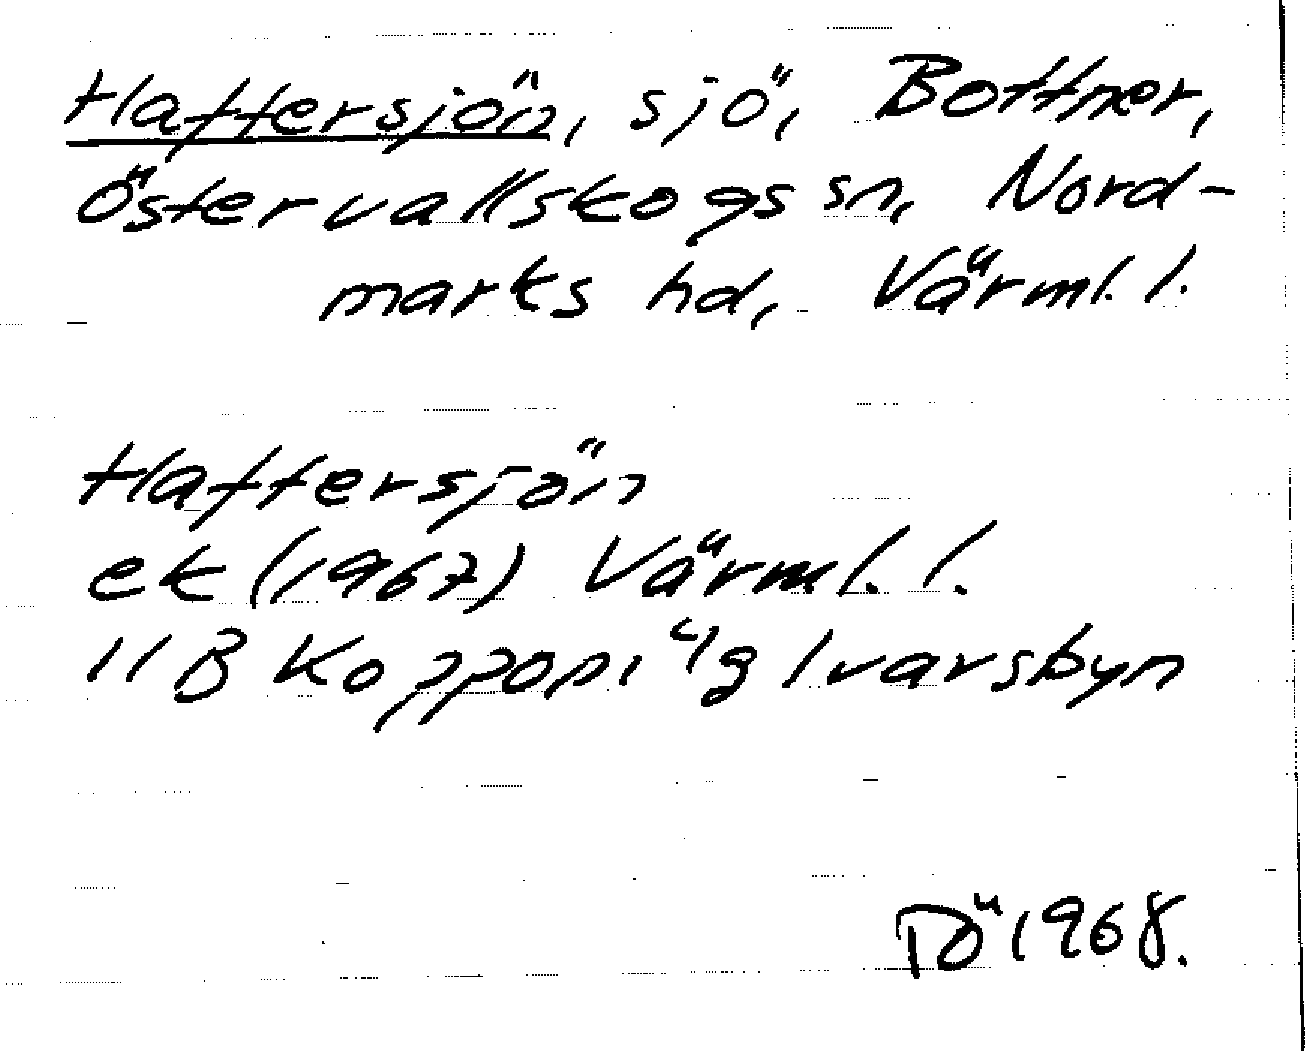 Haftersjön, sjö, Bottner,
Östervallskogs sn, Nord-
marks hd, Värml. l.
Haftersjön
ek (1967) Värml. l.
11B Koppom, 4g Ivarsbyn
PÖ 1968.